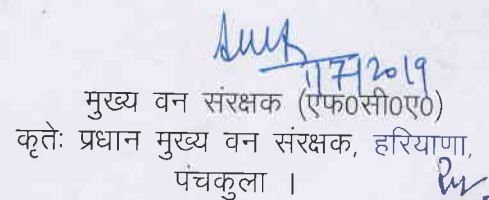 1/7/2019
मुख्य वन संरक्षक (एफ0सी0ए0)
कृतेः प्रधान मुख्य वन संरक्षक, हरियाणा,
पंचकुला ।